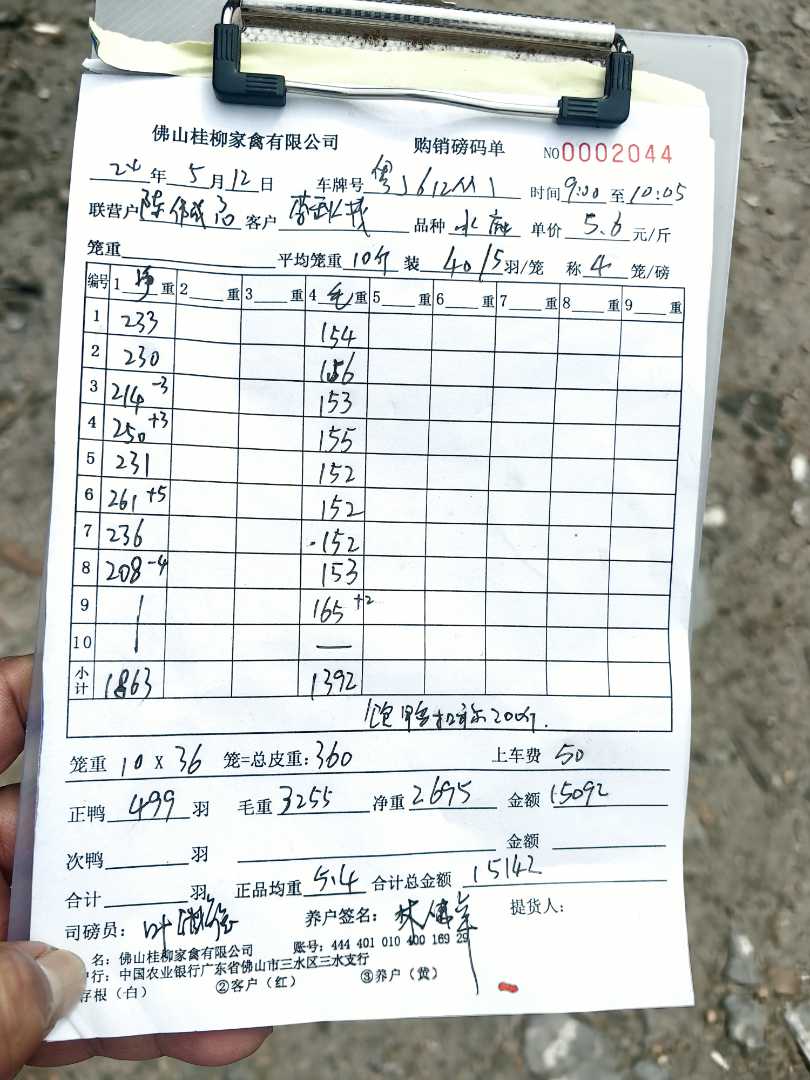 佛山桂柳家禽有限公司 购销磅码单 NO 0002044
24 年 5 月 12 日 车牌号 时间 9:00 至 10:05
联营户 陈伟成 客户 品种 水 单价 5.6 元/斤
笼重 平均笼重 10斤 装 40/5 羽/笼 称 4 笼/磅
编号 1 净 重 2 重 3 重 4 毛 重 5 重 6 重 7 重 8 重 9 重
1 233 154
2 230 156
3 214 -3 153
4 250 +3 155
5 231 152
6 261 +5 152
7 236 152
8 208 -4 153
9 | 165 +2
10 | —
小计 1863 1392
饱鸭扣称200斤.
笼重 10 X 36 笼=总皮重: 360 上车费 50
正鸭 499 羽 毛重 3255 净重 2695 金额 15092
次鸭 羽 金额
合计 羽 正品均重 5.4 合计总金额 15142
司磅员: 叶 养户签名: 林伟 提货人:
名: 佛山桂柳家禽有限公司 账号: 444 401 010 400 169 29
行: 中国农业银行广东省佛山市三水区三水支行
存根(白) ②客户(红) ③养户(黄)